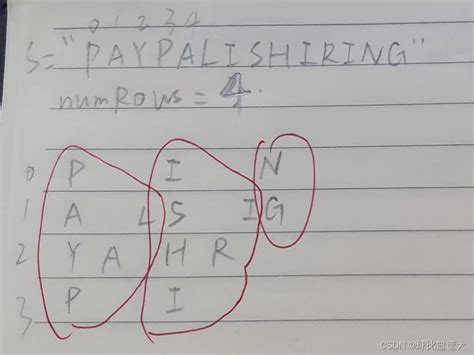 0 1 2 3 4
S="PAYPALISHIRING"
numRows = 4.
0 P I N
1 A L S I G
2 Y A H R
3 P I
CSDN @球比熊猫大